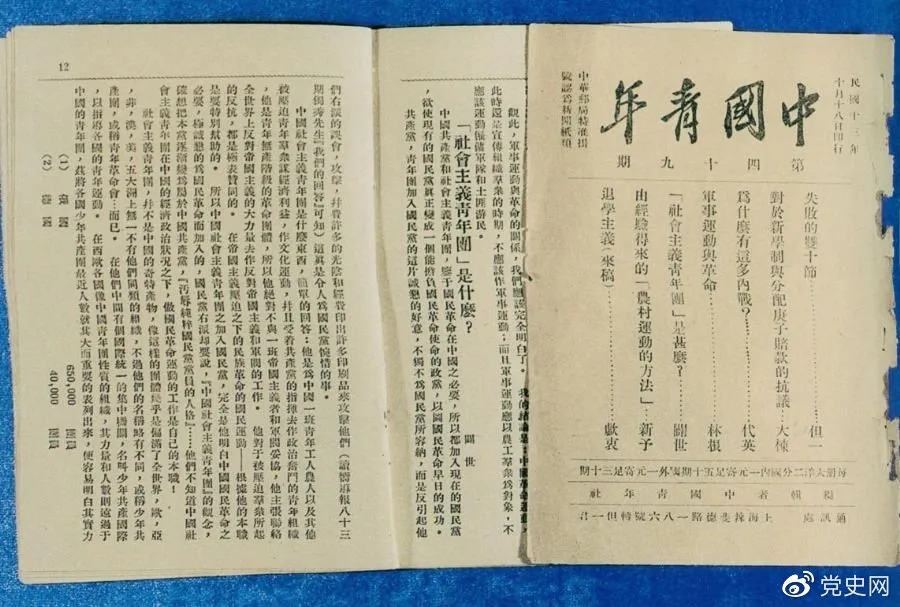 民國十三年
十月十八日印行
中國青年
中華郵局特准掛
號認爲新聞紙類
第四十九期
失敗的雙十節……但一
對於新學制與分配庚子賠款的抗議…大棟
爲什麽有這多內戰？……代英
軍事運動與革命……林根
「社會主義青年團」是甚麽？……闢世
由經驗得來的「農村運動的方法」…新予
退學主義（來稿）……獻衷
每册大洋二分國內一元寄足五十期國外一元寄足三十期
編輯者中國青年社
通訊處 上海辣斐德路一八六號轉但一君
觀此，軍事運動與革命的關係，我們應該完全明白了。我的結論是：中國革命運動，
此時還是宣傳組織羣衆的時期，不應該作軍事運動；而且軍事運動應以農工羣衆爲對象，不
應該運動僱傭軍隊和土匪游民。
「社會主義青年團」是什麼？
闢世
中國共產黨和社會主義青年團，鑒于國民革命在中國之必要，所以都加入現在的國民黨
，欲使現有的國民黨眞正變成一個能擔負國民革命使命的政黨，以圖國民革命早日的成功。
共產黨，青年團加入國民黨的這片誠懇的好意，不獨不爲國民黨所容納，而是反引起他
12
們右派的誤會，攻擊，幷費許多的光陰和經費印出許多印刷品來攻擊他們（讀嚮導報八十三
期獨秀先生『我們的回答』可知）這眞是令人爲國民黨惋惜的事。
中國社會主義青年團是什麼東西，簡單的回答：他是爲中國一班青年工人農人以及其他
被壓迫青年羣衆謀經濟利益，作文化運動，幷且受着共產黨的指揮去作政治奮鬥的青年組織
，他是青年無產階級的革命團體，所以他絕對不與一班帝國主義者和軍閥妥協，他主張聯絡
全世界上反對帝國主義的大力量去作反對帝國主義和軍閥的工作。他對于被壓迫羣衆所起
的反抗，都是極表贊同的。在帝國主義壓迫之下的民族革命的國民運動——根據他的本職
是要特別幫助的。所以中國社會主義青年團之加入國民黨，完全是他明白中國國民革命之
必要，極誠懇的爲國民革命而加入的，國民黨右派却要說，『中國社會主義青年團』的觀念，
確想把本黨逐漸變爲屬於中國共產黨，『汚辱純粹國民黨員的人格』……他們不知道中國社
會主義青年團在中國的經濟政治狀況之下，做國民革命的運動的工作是自己的本職！
社會主義青年團，幷不是中國的奇特產物，像這樣的團體幾乎是徧滿了全世界，歐，亞
，非，澳，美，五大洲上無一不有他們同類的組織，不過他們的名稱略有不同，或稱少年共
產團，或稱青年革命會…而已。在他們中間有個國際統一的集中機關，名叫少年共產國際
，以指導各國的青年運動。在西歐各國像中國青年團性質的組織，其力量和人數則遠過于
中國的青年團，茲將各國少年共產團最近人數就其大而重要的表列出來，便容易明白其實力
（1）650,000 團員
（2）40,000 團員
党史网